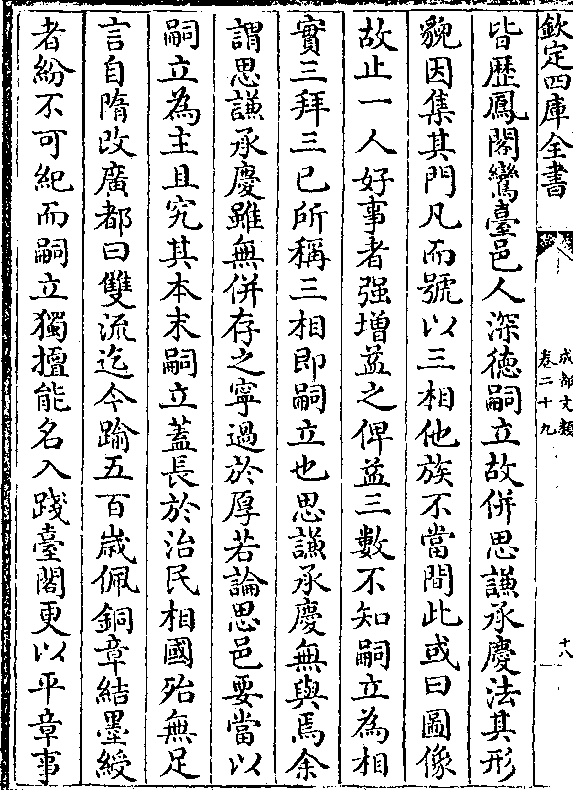 欽定四庫全書
成都文類
卷二十九
十八
皆歴鳳閣鸞臺邑人深徳嗣立故併思謙承慶法其形
貌因集其門凡而號以三相他族不當間此或曰圖像
故止一人好事者强增益之俾益三數不知嗣立為相
實三拜三已所稱三相即嗣立也思謙承慶無與焉余
謂思謙承慶雖無併存之寧過於厚若論思邑要當以
嗣立為主且究其本末嗣立蓋長於治民相國殆無足
言自隋改廣都曰雙流迄今踰五百歳佩銅章結墨綬
者紛不可紀而嗣立獨擅能名入踐臺閣更以平章事